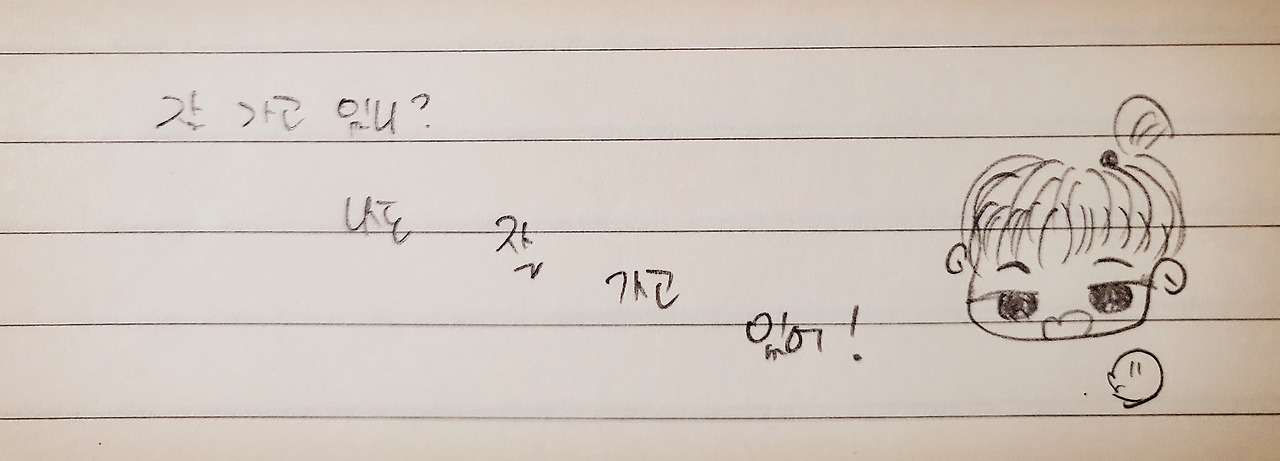 잘 가고 있니?
나는 잘 가고 있어!